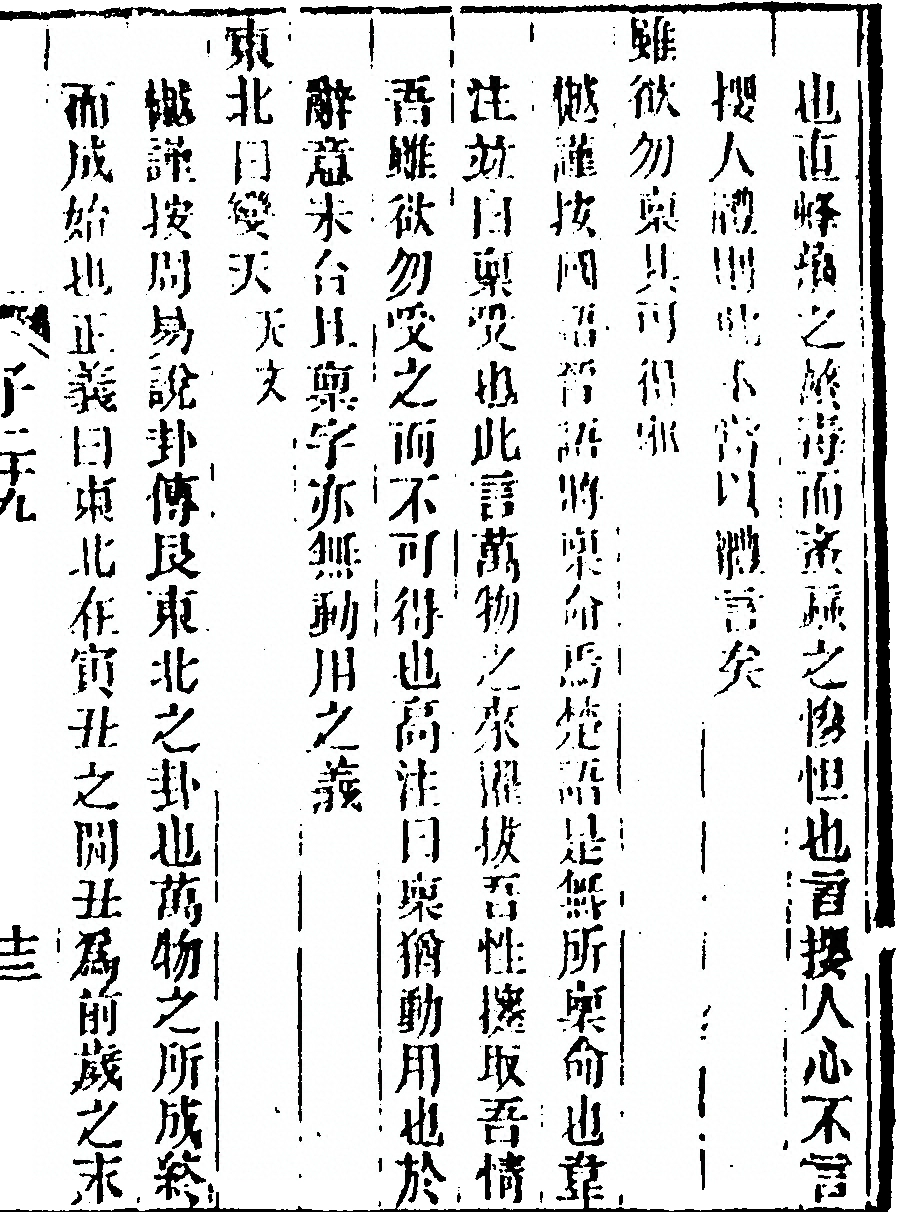 也直蜂蠆之螫毒而蚉蝱之慘怛也言攖人心不言
攖人體則此不當以體言矣
雖欲勿稟其可得邪
樾謹按國語晉語將稟命焉楚語是無所稟命也韋
注並曰稟受也此言萬物之來擢拔吾性攓取吾情
吾雖欲勿受之而不可得也高注曰稟猶動用也於
辭意未合且稟字亦無動用之義
東北曰變天 天文
樾謹按周易說卦傳艮東北之卦也萬物之所成終
而成始也正義曰東北在寅丑之閒丑爲前歲之末
子二十九
十三